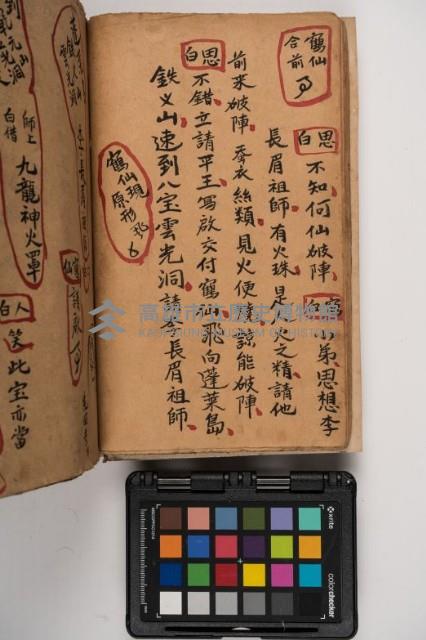 鶴仙
合前
思白 不知何仙破陣
鶴白 小弟思想李
長眉祖師有火珠是
之精請他
前來破陣
衣絲類見火便
諒能破陣
思白 不錯立請平王寫啟交付鶴
飛向蓬萊島
鉄义山速到八宝雲光洞請李長眉祖師
鶴仙現
原形
師上 九龍神火罩
白借
仙
人白 笑此宝亦當
高雄市立歷史博物館
KAOHSIUNG MUSEUM OF HISTORY
x-rite
colorchecker